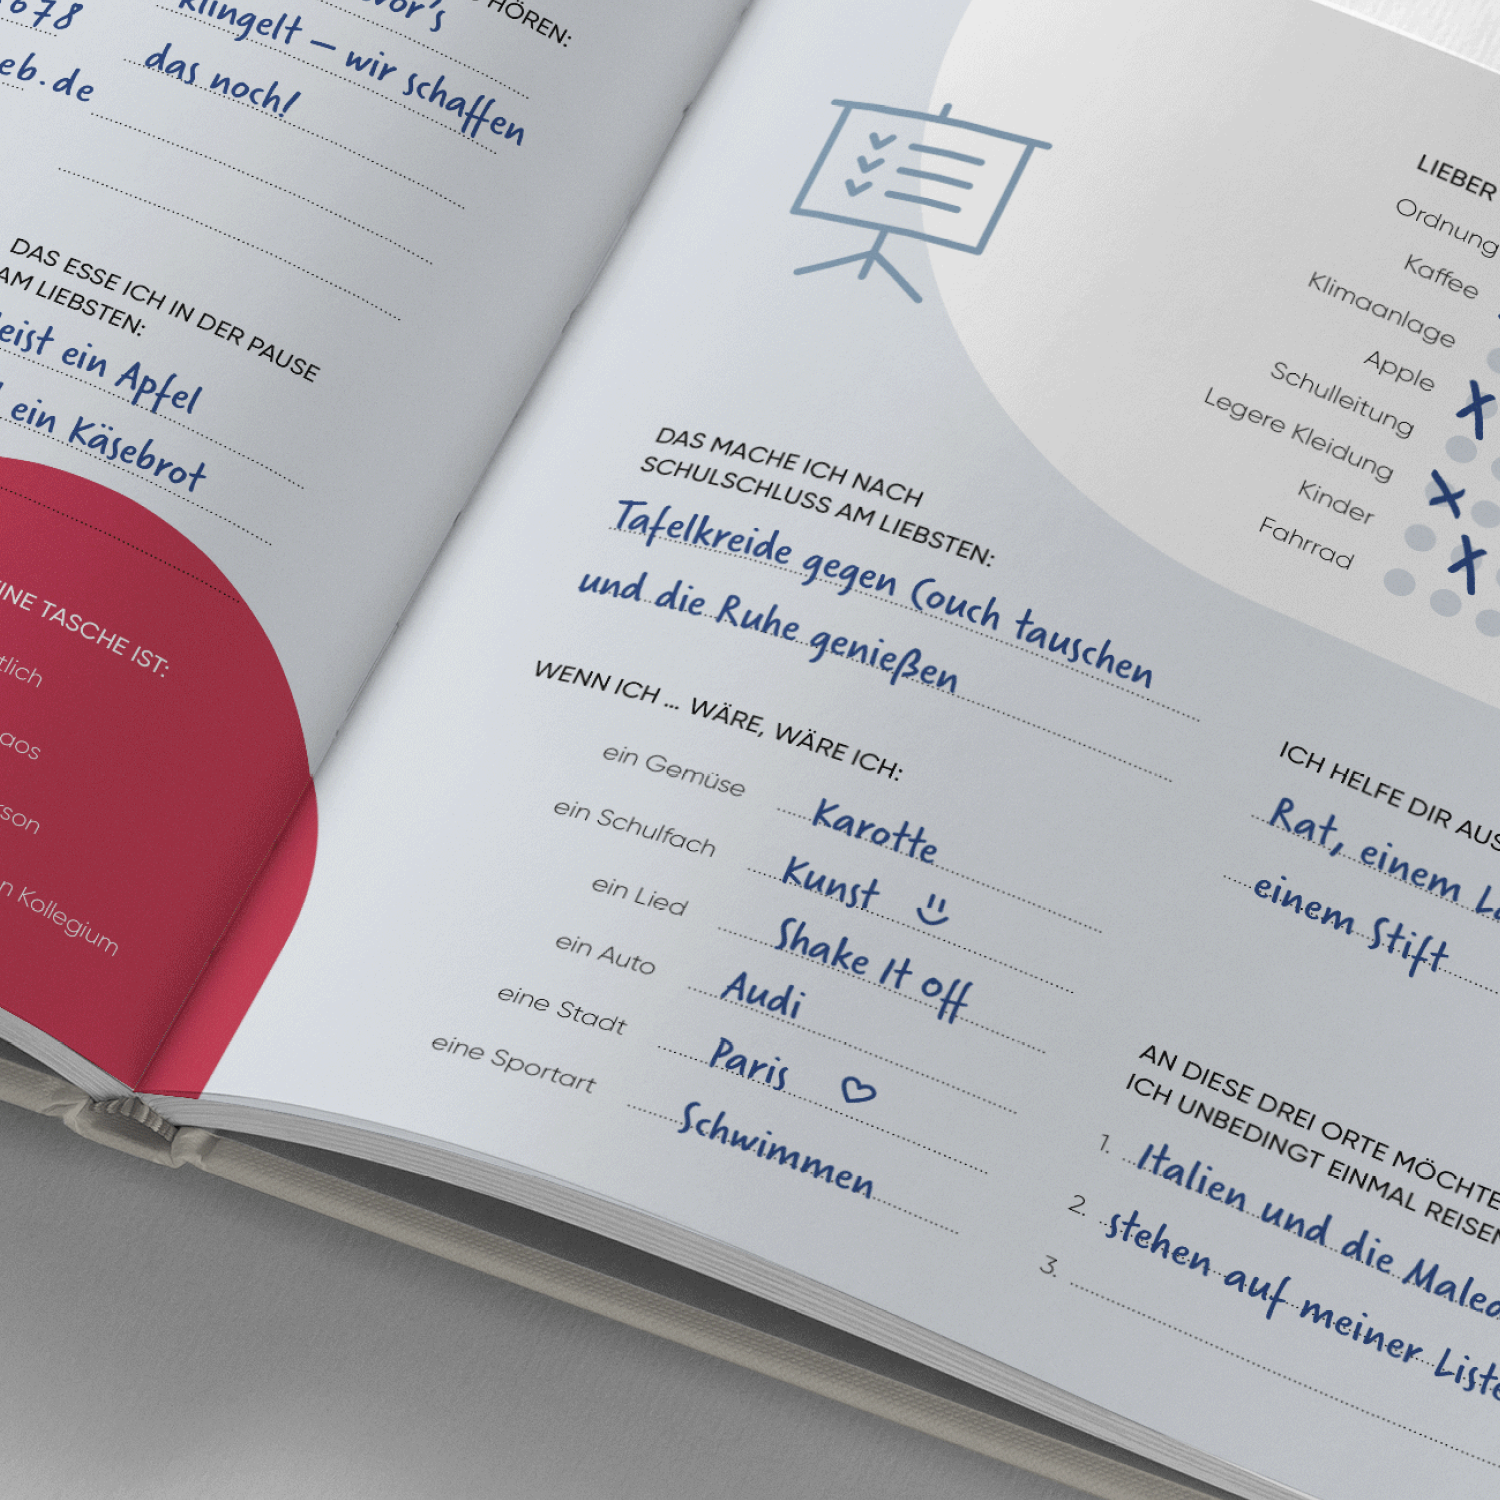 678
eb.de
HÖREN:
vor's
klingelt – wir schaffen
das noch!
DAS ESSE ICH IN DER PAUSE
AM LIEBSTEN:
ein Apfel
ein Käsebrot
TASCHE IST:
Kollegium
DAS MACHE ICH NACH
SCHULSCHLUSS AM LIEBSTEN:
Tafelkreide gegen Couch tauschen
und die Ruhe genießen
WENN ICH ... WÄRE, WÄRE ICH:
ein Gemüse Karotte
ein Schulfach Kunst
ein Lied Shake It off
ein Auto Audi
eine Stadt Paris
eine Sportart Schwimmen
LIEBER
Ordnung
Kaffee
Klimaanlage
Apple
Schulleitung
Legere Kleidung
Kinder
Fahrrad
ICH HELFE DIR AUS
Rat, einem
einem Stift
AN DIESE DREI ORTE MÖCHTE
ICH UNBEDINGT EINMAL REISEN
1. Italien und die
2. stehen auf meiner Liste
3.